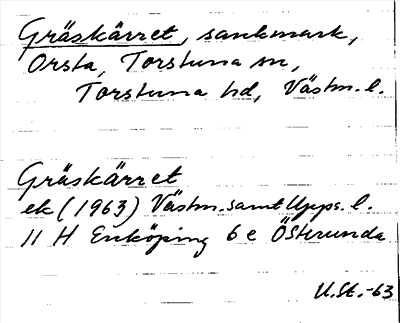 Gräskärret, sankmark,
Orsta, Torstuna sn,
Torstuna hd, Västm. l.
Gräskärret
ek (1963) Västm. samt Upps. l.
11 H Enköping 6 e Österunda
U.St.-63